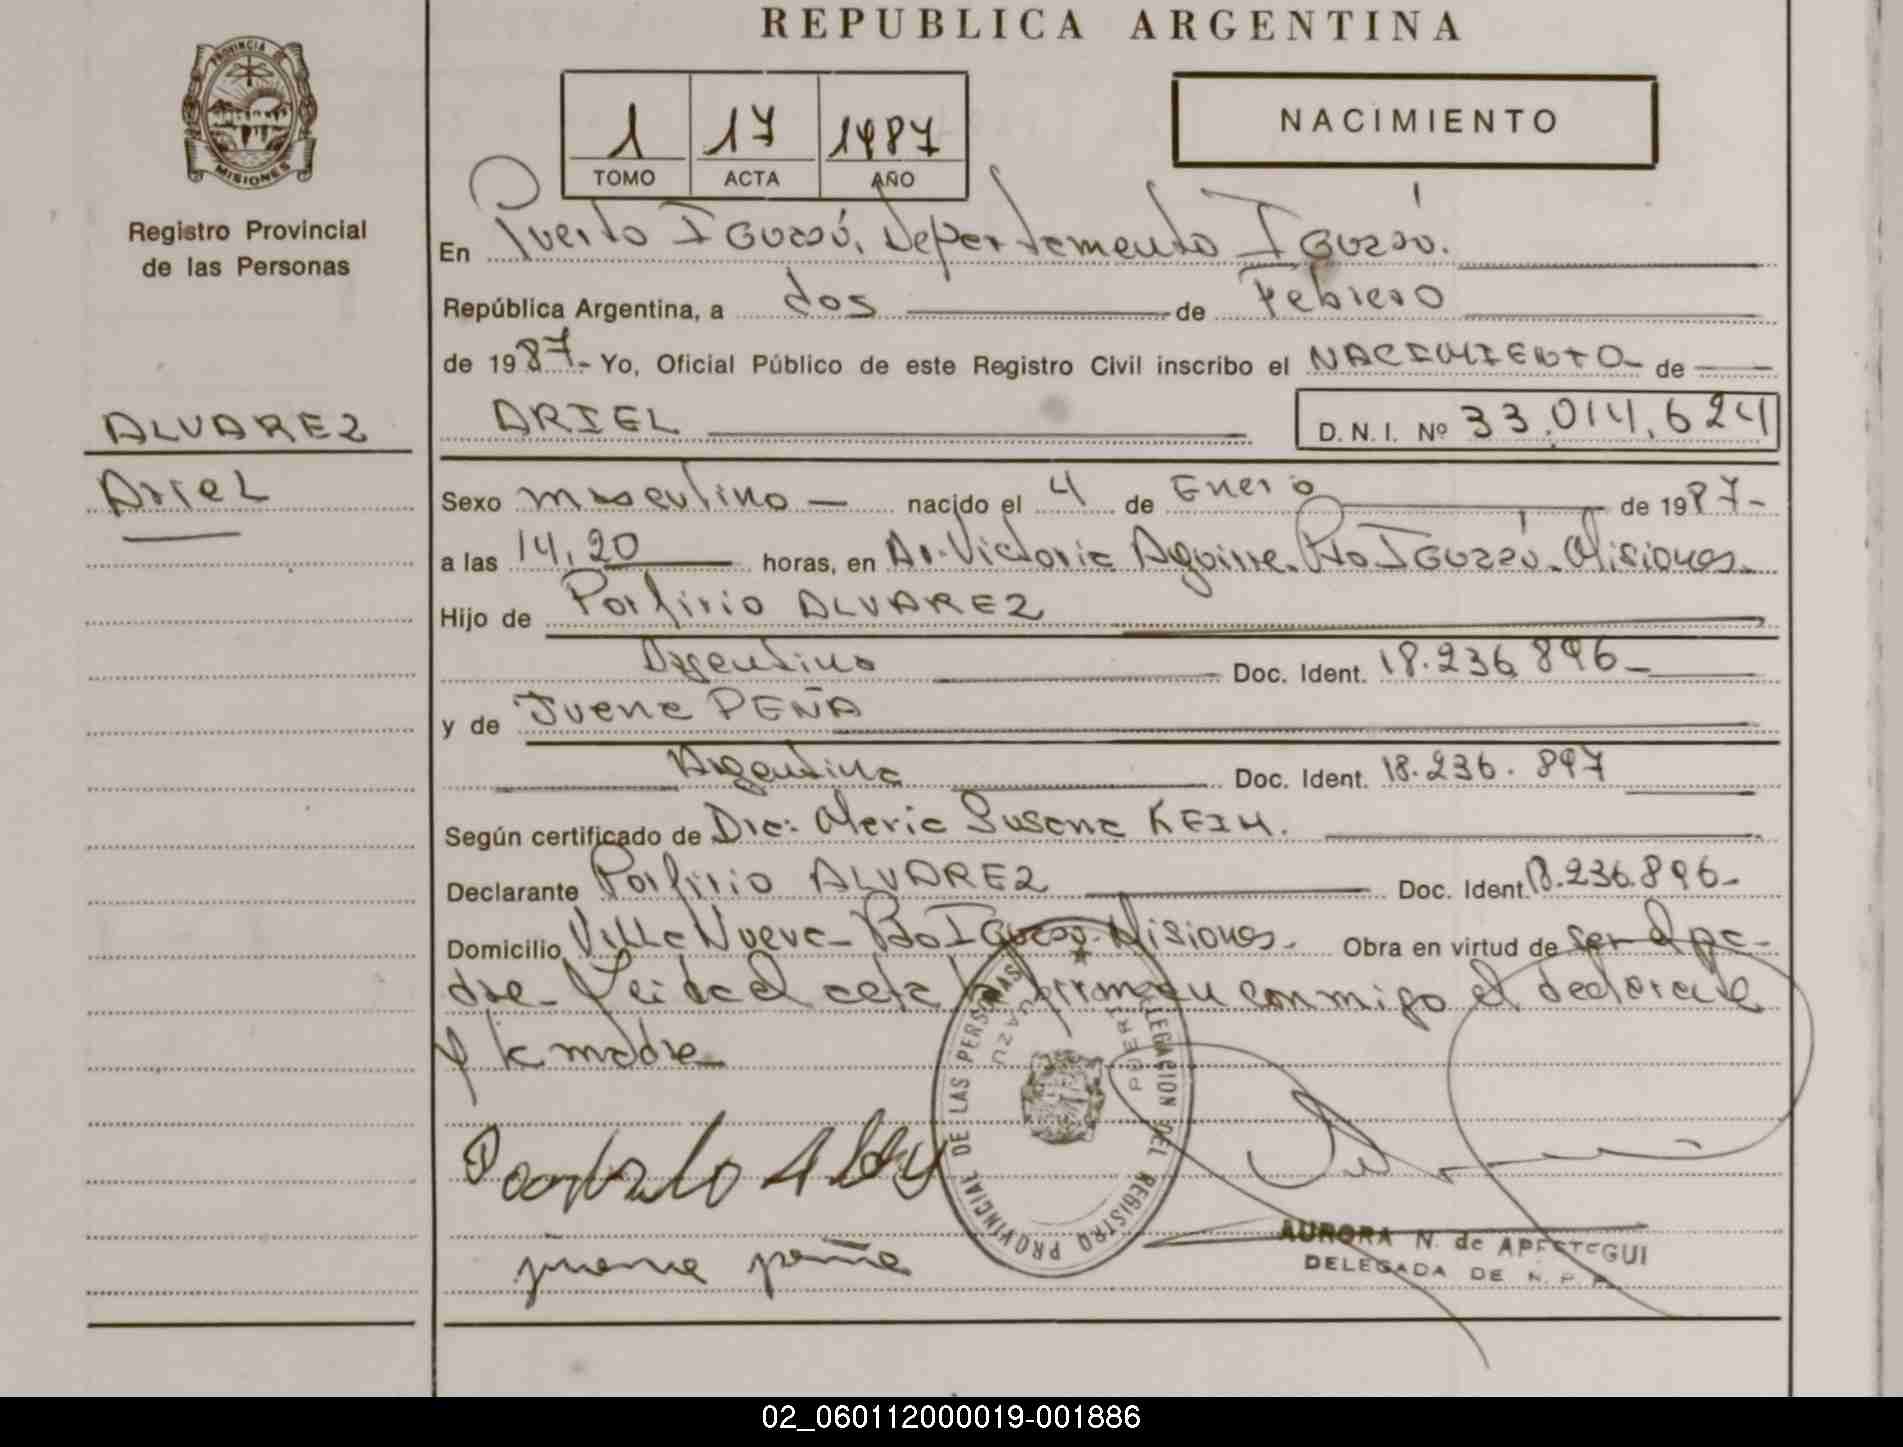 REPUBLICA ARGENTINA
PROVINCIA DE
MISIONES
Registro Provincial
de las Personas
1 17 1987
TOMO ACTA AÑO
NACIMIENTO
En Puerto Iguazú, Departamento Iguazú.
República Argentina, a dos de Febrero
de 1987- Yo, Oficial Público de este Registro Civil inscribo el NACIMIENTO- de
ALVAREZ
ARIEL D. N. I. Nº 33.014.624
Ariel
Sexo masculino - nacido el 4 de Enero de 1987-
a las 14,20 horas, en Av. Victoria Aguirre. Pto Iguazú. Misiones.
Hijo de Porfirio ALVAREZ
Argentino Doc. Ident. 18.236.896-
y de Juana PEÑA
Argentina Doc. Ident. 18.236.897
Según certificado de Dra: Maria Susana KEIM.
Declarante Porfirio ALVAREZ Doc. Ident. 18.236.896-
Domicilio Villa Nueva- Pto Iguazú. Misiones. Obra en virtud de ser el pa-
dre- Leida el acta la firman conmigo el declarante
y la madre
juana peña
DELEGACION DEL REGISTRO PROVINCIAL DE LAS PERSONAS
AURORA N. de APESTEGUI
DELEGADA DE
02_060112000019-001886